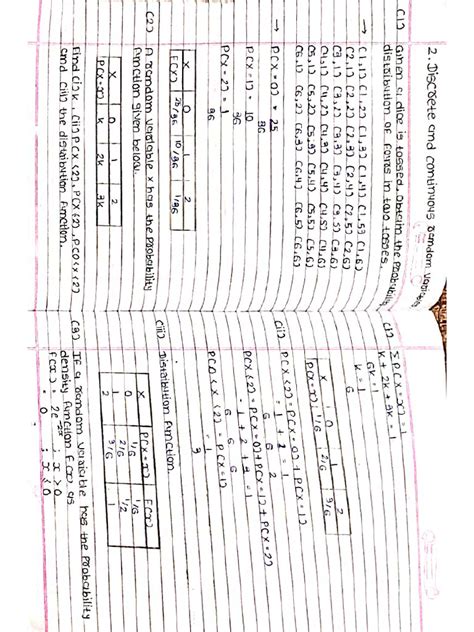 2. Discrete and continuous random variable
(1) Given a dice is tossed. Obtain the probability
distribution of fours in two tosses.
→ (1,1) (1,2) (1,3) (1,4) (1,5) (1,6)
(2,1) (2,2) (2,3) (2,4) (2,5) (2,6)
(3,1) (3,2) (3,3) (3,4) (3,5) (3,6)
(4,1) (4,2) (4,3) (4,4) (4,5) (4,6)
(5,1) (5,2) (5,3) (5,4) (5,5) (5,6)
(6,1) (6,2) (6,3) (6,4) (6,5) (6,6)
→ P(X=0) = 25/36
P(X=1) = 10/36
P(X=2) = 1/36
X 0 1 2
F(X) 25/36 10/36 1/36
(2) A random variable x has the probability
function given below.
X 0 1 2
P(X=x) k 2k 3k
Find (i) k, (ii) P(X<2), P(X≤2), P(0<X<2)
and (iii) the distribution function.
(i) ΣP(X=x) = 1
k + 2k + 3k = 1
6k = 1
k = 1/6
X 0 1 2
P(X=x) 1/6 2/6 3/6
(ii) P(X<2) = P(X=0) + P(X=1)
= 1/6 + 2/6 = 1/2
P(X≤2) = P(X=0) + P(X=1) + P(X=2)
= 1/6 + 2/6 + 3/6 = 1
P(0<X<2) = P(X=1)
= 1/3
(iii) Distribution Function.
X P(X=x) F(X)
0 1/6 1/6
1 2/6 1/2
2 3/6 1
(3) If a random variable has the probability
density function F(x) as
F(x) = 2e^-2x ; x > 0
= 0 ; x ≤ 0